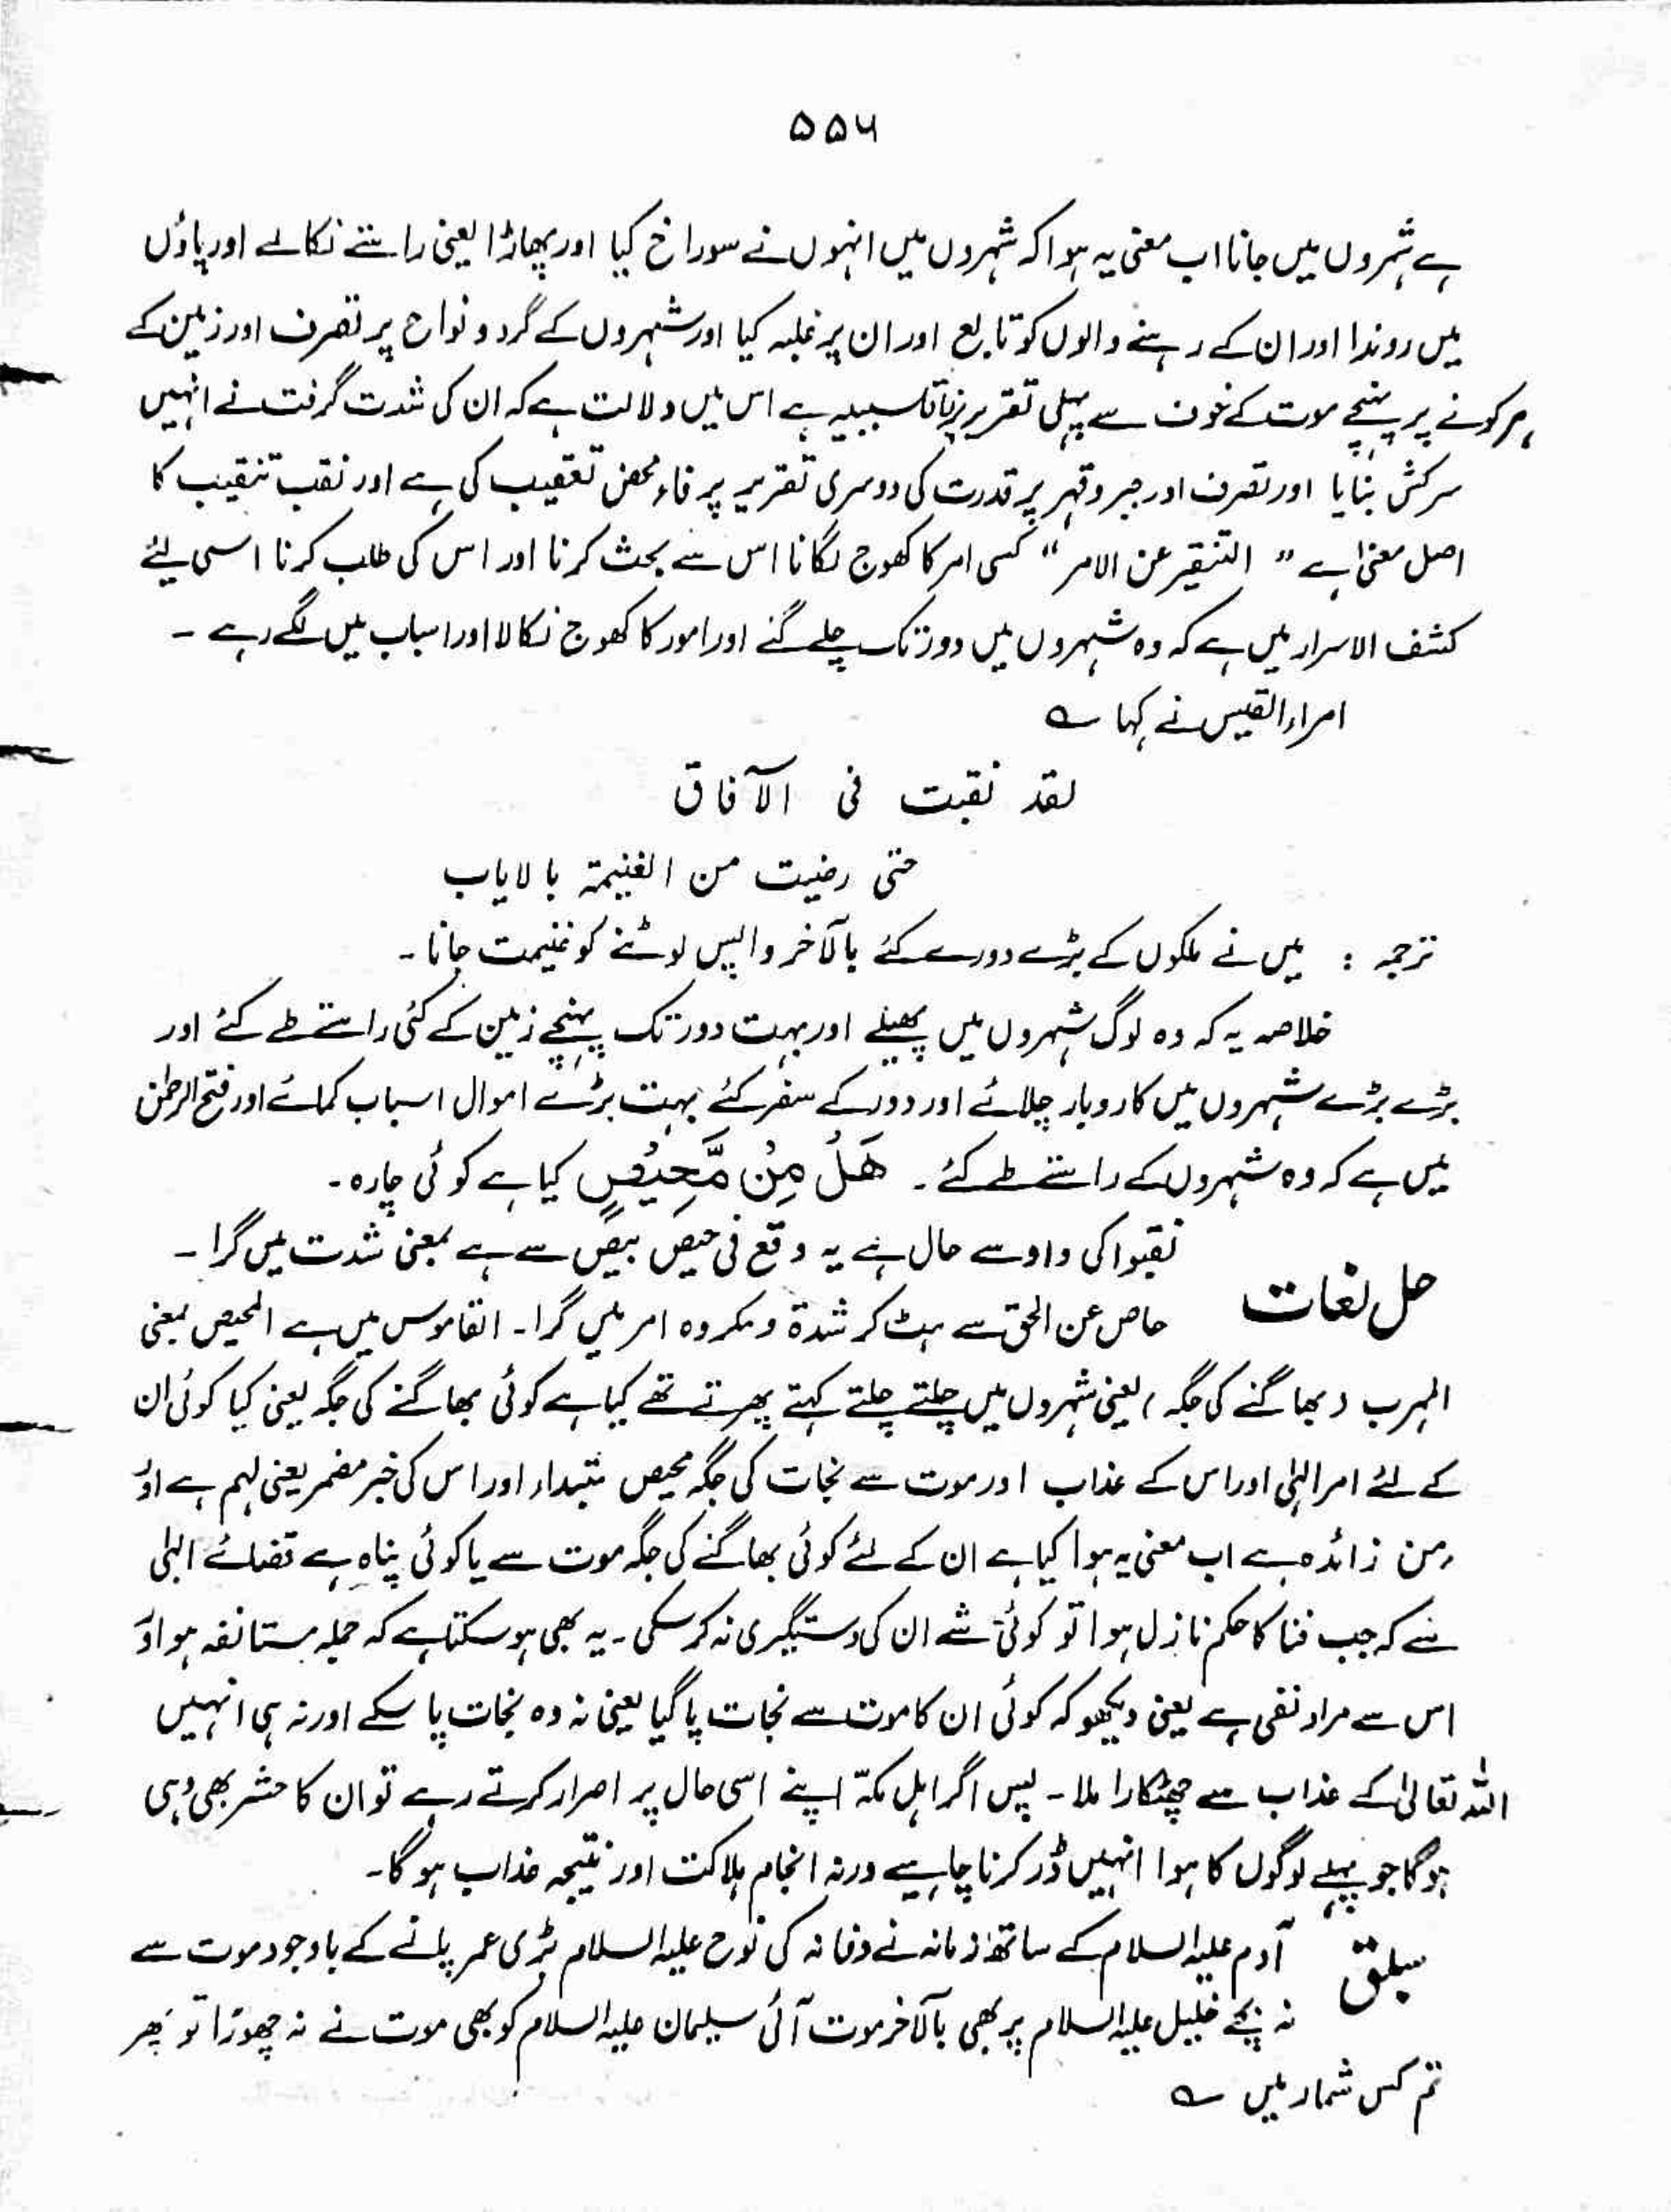 ۵۵۶
ہے شہروں میں جانا اب معنی یہ ہوا کہ شہروں میں انہوں نے سوراخ کیا اور پھاڑا یعنی راستے نکالے اور پاؤں
میں روندا اور ان کے رہنے والوں کو تابع اور ان پر غلبہ کیا اور شہروں کے گرد و نواح پر تصرف اور زمین کے
ہر کونے پر پہنچے موت کے خوف سے پہلی تقریر پر فاء سببیہ ہے اس میں دلالت ہے کہ ان کی شدت گرفت نے انہیں
سرکش بنایا اور تصرف اور جبر و قہر پر قدرت کی دوسری تقریر پر فاء محض تعقیب کی ہے اور نقب تنقیب کا
اصل معنیٰ ہے " التنقیر عن الامر " کسی امر کا کھوج لگانا اس سے بحث کرنا اور اس کی طلب کرنا اسی لئے
کشف الاسرار میں ہے کہ وہ شہروں میں دور تک چلے گئے اور امور کا کھوج نکالا اور اسباب میں لگے رہے ۔
امراء القیس نے کہا ؎
لقد نقبت فی الآفاق
حتی رضیت من الغنیمۃ بالایاب
ترجمہ : میں نے ملکوں کے بڑے دورے کئے بالآخر واپس لوٹنے کو غنیمت جانا ۔
خلاصہ یہ کہ وہ لوگ شہروں میں پھیلے اور بہت دور تک پہنچے زمین کے کئی راستے طے کئے اور
بڑے بڑے شہروں میں کاروبار چلائے اور دور کے سفر کئے بہت بڑے اموال اسباب کمائے اور فتح الرحمٰن
میں ہے کہ وہ شہروں کے راستے طے کئے ۔ هَلْ مِنْ مَّحِیْصٍ کیا ہے کوئی چارہ ۔
حل لغات نقبوا کی واو سے حال ہے یہ وقع فی حیص بیص سے ہے بمعنی شدت میں گرا ۔
حاص عن الحق سے ہٹ کر شدۃ و مکروہ امر میں گرا ۔ القاموس میں ہے المحیص بمعنی
المہرب ( بھاگنے کی جگہ ) یعنی شہروں میں چلتے چلتے کہتے پھرتے تھے کیا ہے کوئی بھاگنے کی جگہ یعنی کیا کوئی ان
کے لئے امر الٰہی اور اس کے عذاب اور موت سے نجات کی جگہ محیص مبتداء اور اس کی خبر مضمر یعنی لہم ہے اور
من زائدہ ہے اب معنی یہ ہوا کیا ہے ان کے لئے کوئی بھاگنے کی جگہ موت سے یا کوئی پناہ ہے قضائے الٰہی
سے کہ جب فنا کا حکم نازل ہوا تو کوئی شے ان کی دستگیری نہ کر سکی ۔ یہ بھی ہو سکتا ہے کہ جملہ مستانفہ ہو اور
اس سے مراد نفی ہے یعنی دیکھو کہ کوئی ان کا موت سے نجات پا گیا یعنی نہ وہ نجات پا سکے اور نہ ہی انہیں
اللہ تعالیٰ کے عذاب سے چھٹکارا ملا ۔ پس اگر اہل مکہّ اپنے اسی حال پر اصرار کرتے رہے تو ان کا حشر بھی وہی
ہوگا جو پہلے لوگوں کا ہوا انہیں ڈر کرنا چاہیے ورنہ انجام ہلاکت اور نتیجہ عذاب ہو گا ۔
سبق آدم علیہ السلام کے ساتھ زمانہ نے وفا نہ کی نوح علیہ السلام بڑی عمر پانے کے باوجود موت سے
نہ بچے خلیل علیہ السلام پر بھی بالآخر موت آئی سلیمان علیہ السلام کو بھی موت نے نہ چھوڑا تو پھر
تم کس شمار میں ؎